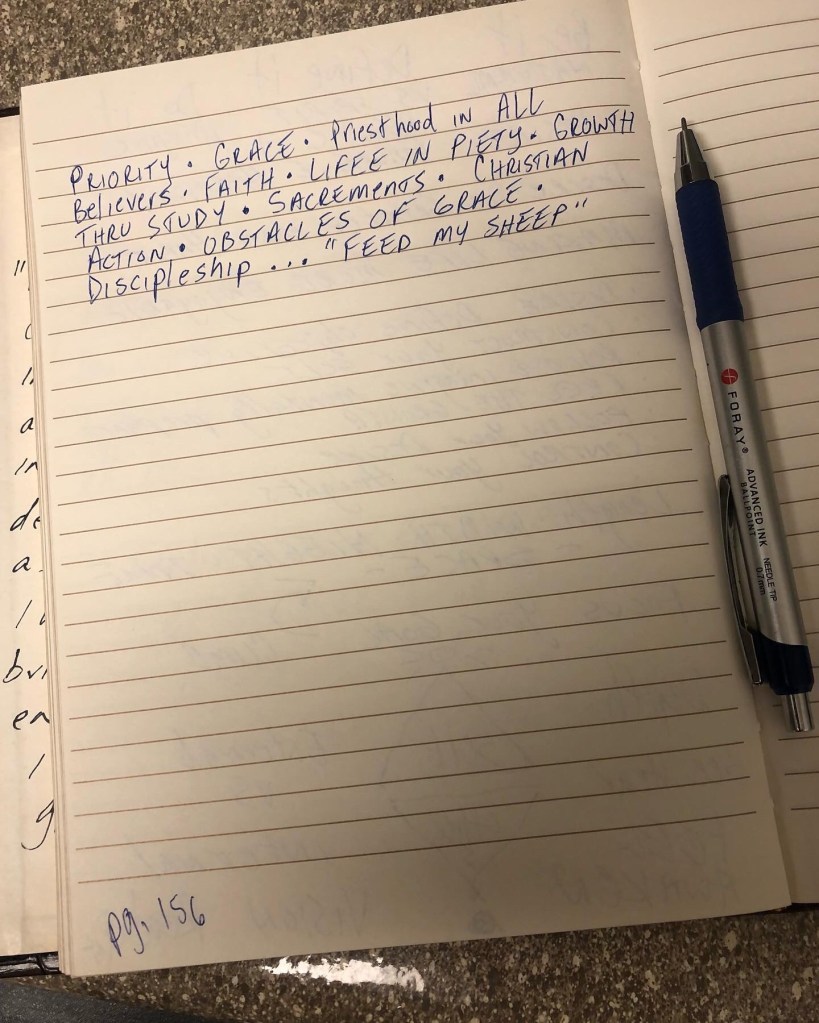 PRIORITY • GRACE • Priesthood IN ALL
Believers • FAITH • LIFEE IN PIETY • GROWTH
THRU STUDY • SACREMENTS • CHRISTIAN
ACTION • OBSTACLES OF GRACE •
Discipleship ... "FEED MY SHEEP"
pg. 156
FORAY® ADVANCED INK NEEDLE TIP
BALLPOINT 0.7mm